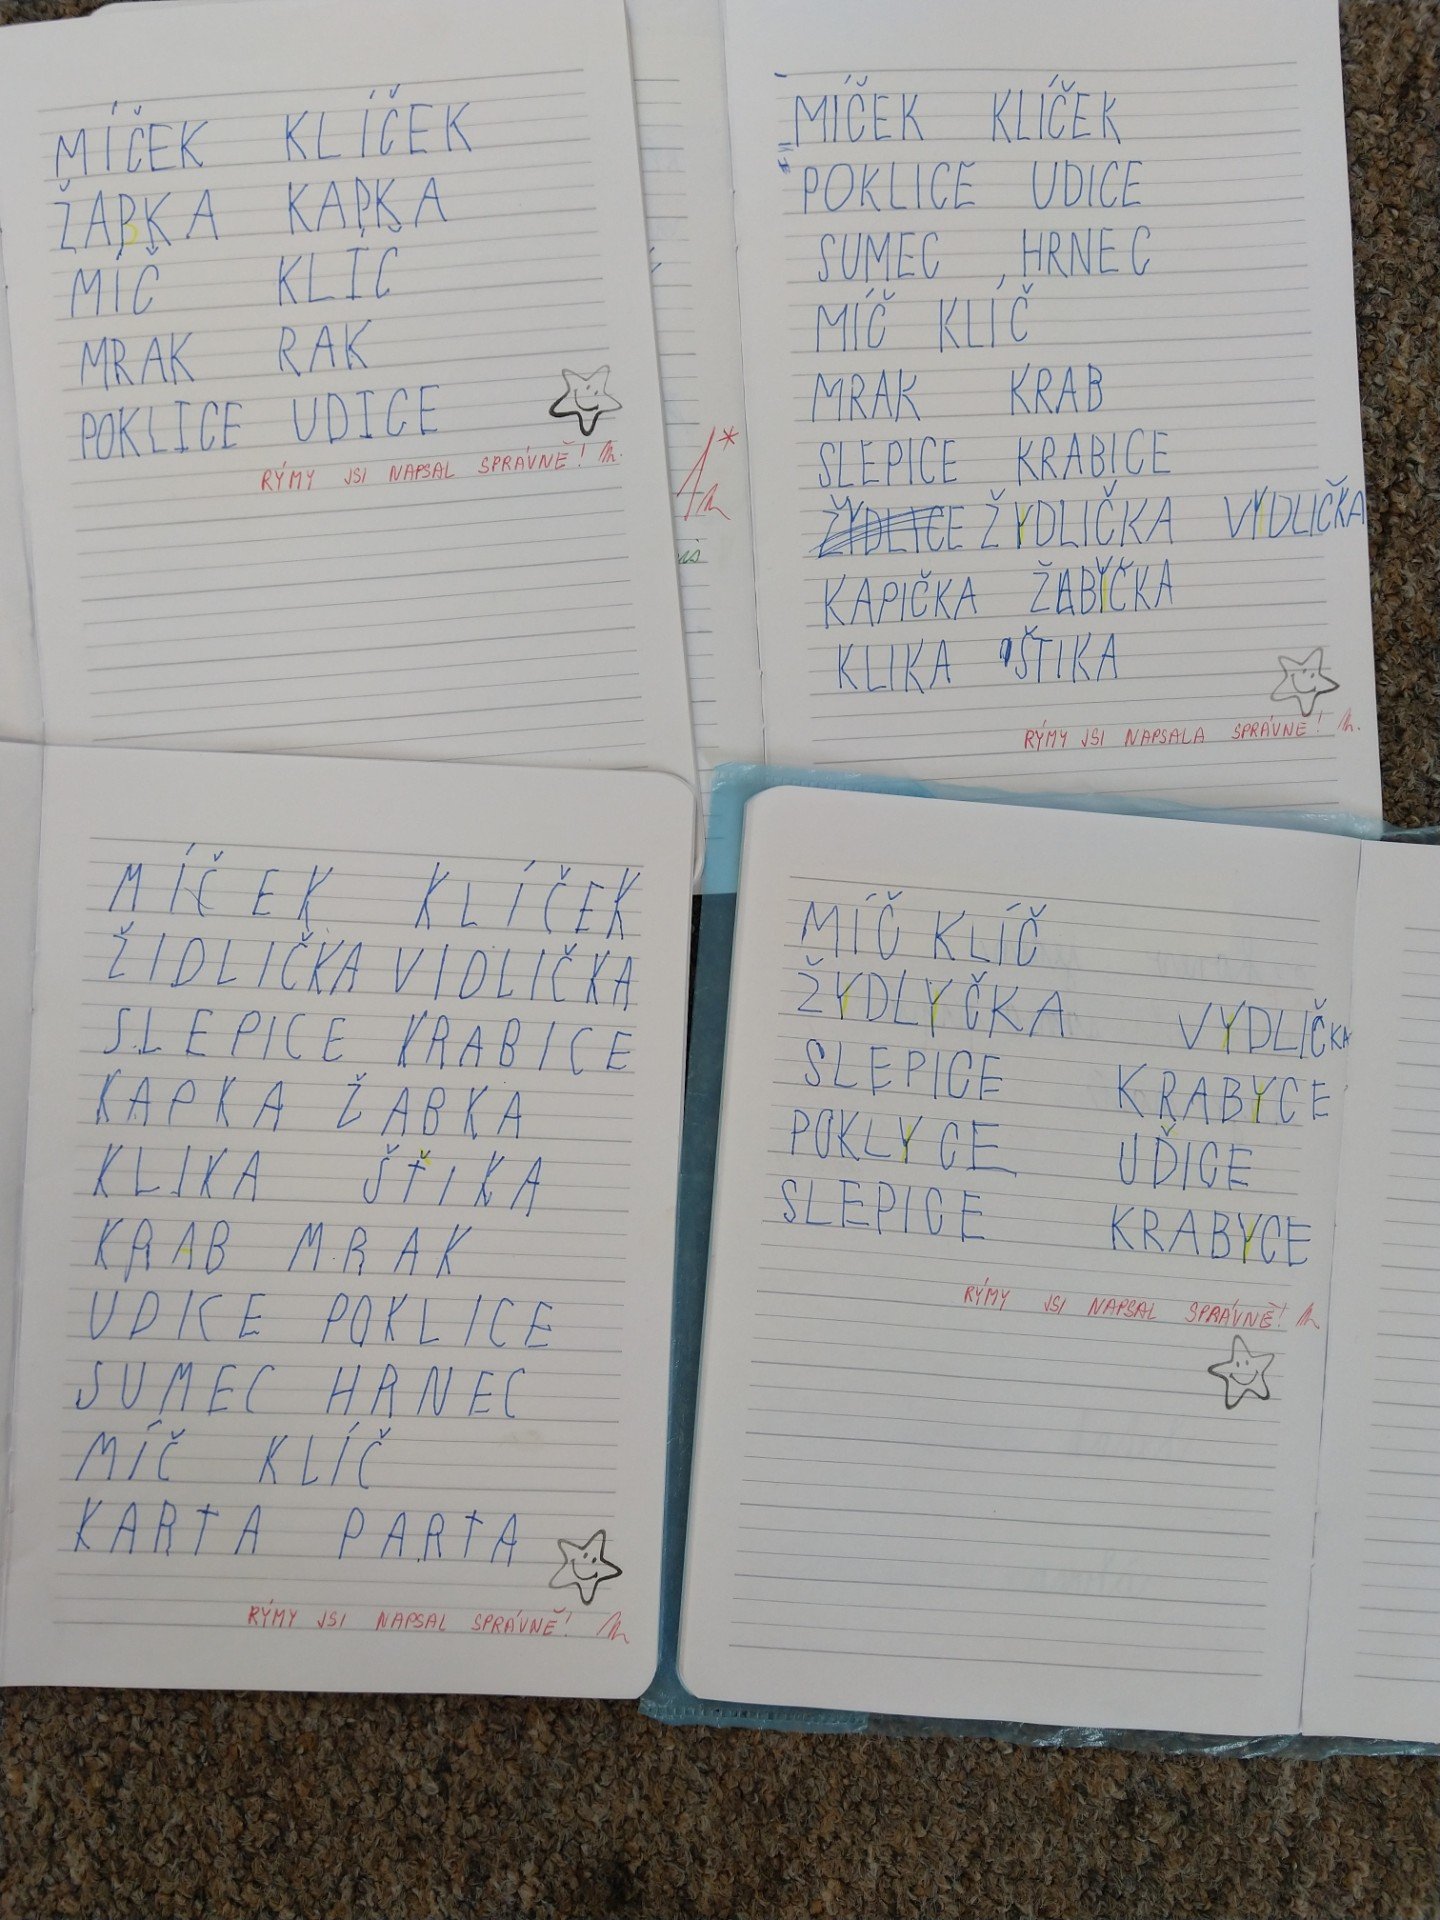 MÍČEK KLÍČEK
ŽABKA KAPKA
MÍČ KLÍČ
MRAK RAK
POKLICE UDICE
RÝMY JSI NAPSAL SPRÁVNĚ!
1*
MÍČEK KLÍČEK
POKLICE UDICE
SUMEC HRNEC
MÍČ KLÍČ
MRAK KRAB
SLEPICE KRABICE
ŽYDLICE ŽYDLIČKA VYDLIČKA
KAPIČKA ŽABYČKA
KLIKA ŠTIKA
RÝMY JSI NAPSALA SPRÁVNĚ!
MÍČEK KLÍČEK
ŽIDLIČKA VIDLIČKA
SLEPICE KRABICE
KAPKA ŽABKA
KLIKA ŠŤIKA
KRAB MRAK
UDICE POKLICE
SUMEC HRNEC
MÍČ KLÍČ
KARTA PARTA
RÝMY JSI NAPSAL SPRÁVNĚ!
MÍČ KLÍČ
ŽYDLYČKA VYDLÍČKA
SLEPICE KRABYCE
POKLYCE UĎICE
SLEPICE KRABYCE
RÝMY JSI NAPSAL SPRÁVNĚ!